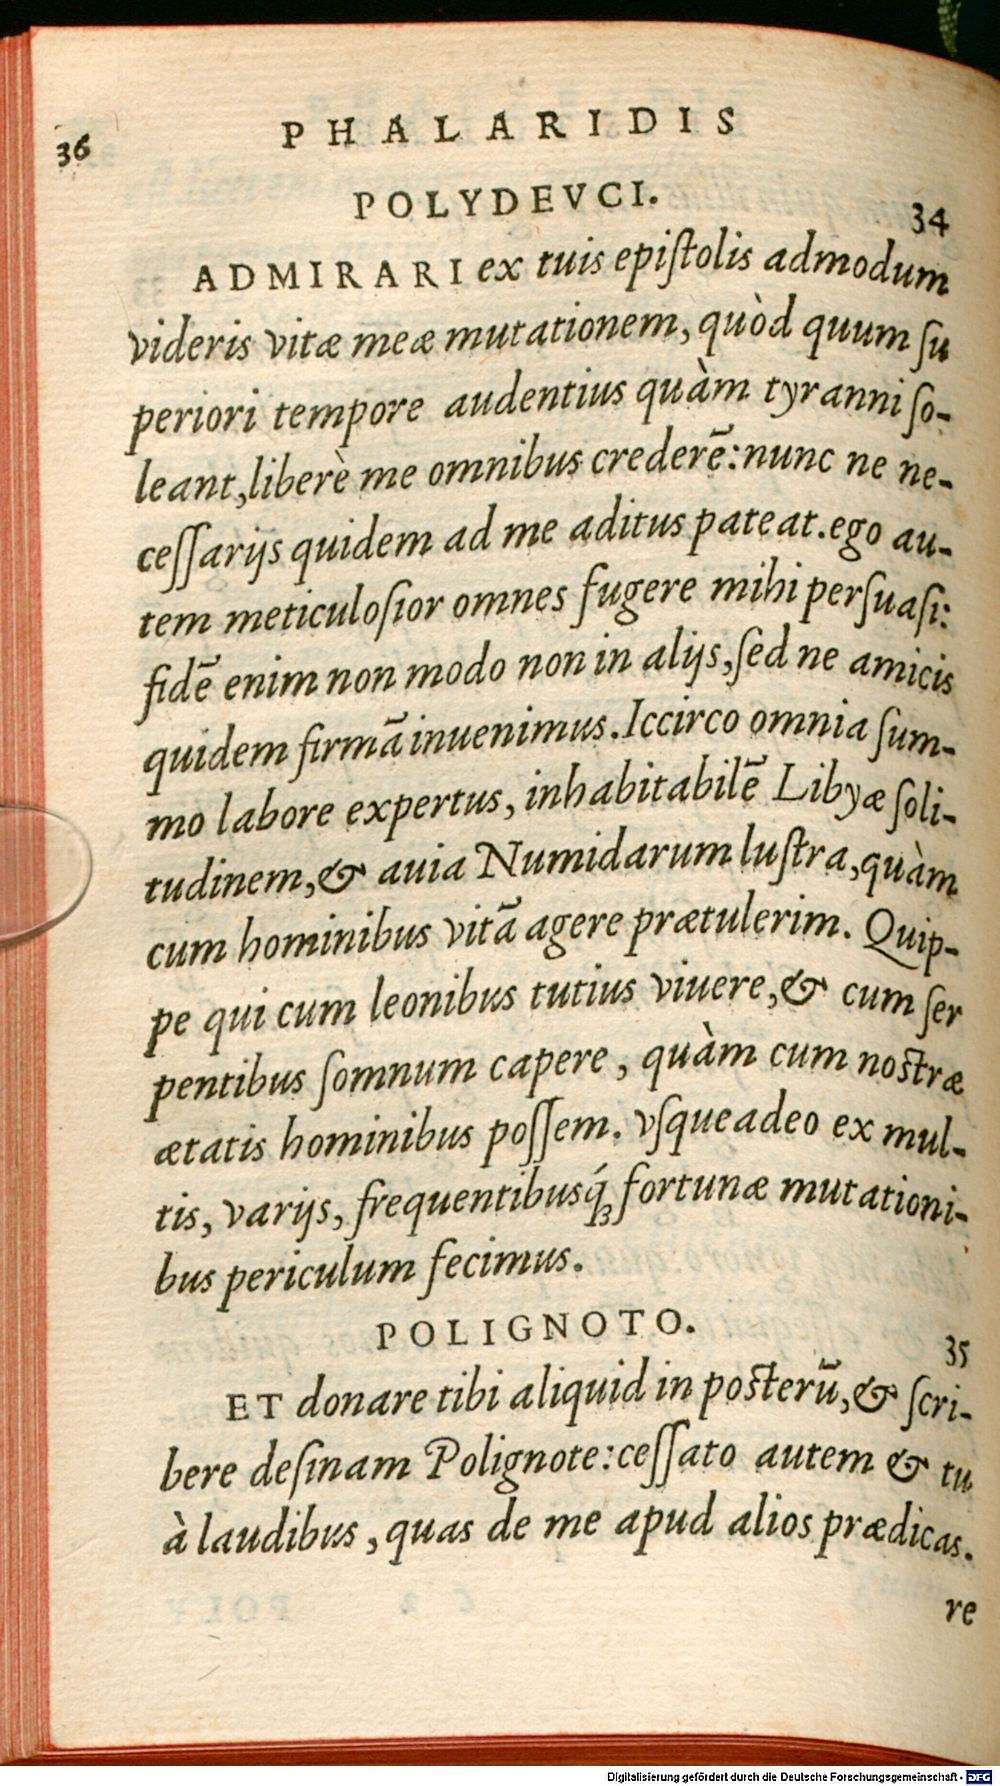 36
PHALARIDIS
POLYDEVCI.
34
ADMIRARI ex tuis epiſtolis admodum
videris vitæ meæ mutationem, quòd quum ſu
periori tempore audentius quàm tyranni ſo-
leant, liberè me omnibus crederē: nunc ne ne-
ceſſarijs quidem ad me aditus pateat. ego au-
tem meticuloſior omnes fugere mihi perſuaſi:
fidē enim non modo non in alijs, ſed ne amicis
quidem firmā inuenimus. Iccirco omnia ſum-
mo labore expertus, inhabitabilē Libyæ ſoli-
tudinem, & auia Numidarum luſtra, quàm
cum hominibus vitā agere prætulerim. Quip-
pe qui cum leonibus tutius viuere, & cum ſer
pentibus ſomnum capere, quàm cum noſtræ
ætatis hominibus poſſem. vſqueadeo ex mul-
tis, varijs, frequentibusq́ꝫ fortunæ mutationi-
bus periculum fecimus.
POLIGNOTO.
35
ET donare tibi aliquid in poſterū, & ſcri-
bere deſinam Polignote: ceſſato autem & tu
à laudibus, quas de me apud alios prædicas.
re
Digitalisierung gefördert durch die Deutsche Forschungsgemeinschaft - DFG